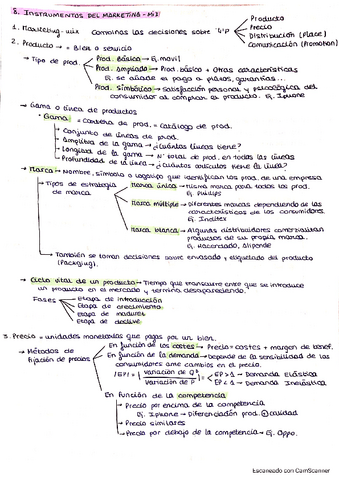 8. INSTRUMENTOS DEL MARKETING-MIX
1. Marketing-mix Combinas las decisiones sobre "4P"
Producto
Precio
Distribución (Place)
Comunicación (Promotion)
2. Producto → = Bien o servicio
→ Tipo de prod.
Prod. Básico → Ej. móvil
Prod. Ampliado → Prod. básico + otras características
Ej. se añade el pago a plazos, garantías...
Prod. simbólico → satisfacción personal y psicológica del
consumidor al comprar el producto. Ej. Iphone
→ Gama o línea de productos
Gama: = Cartera de prod. = Catálogo de prod.
Conjunto de líneas de prod.
Amplitud de la gama → ¿Cuántas líneas tiene?
Longitud de la gama → Nº total de prod. en todas las líneas
Profundidad de la línea → ¿Cuántos artículos tiene la línea?
→ Marca → Nombre, símbolo o logotipo que identifican los prod. de una empresa
→ Tipos de estrategia
de marca
Marca única → misma marca para todos los prod.
Ej. Philips
Marca múltiple → Diferentes marcas dependiendo de las
características de los consumidores.
Ej. Inditex
Marca blanca → Algunas distribuidoras comercializan
productos de su propia marca.
Ej. Hacendado, Alipende
→ También se toman decisiones sobre envasado y etiquetado del producto
(Packaging).
→ Ciclo vital de un producto → Tiempo que transcurre entre que se introduce
un producto en el mercado y termina desapareciendo.
Fases
Etapa de introducción
Etapa de crecimiento
Etapa de madurez
Etapa de declive
3. Precio = unidades monetarias que pagas por un bien.
→ Métodos de
fijación de precios
En función de los costes → Precio = costes + margen de benef.
En función de la demanda → Depende de la sensibilidad de los
consumidores ante cambios en el precio.
|EP| = | Variación de Q / Variación de P | = EP > 1 → Demanda Elástica
EP < 1 → Demanda Inelástica
En función de la competencia
→ Precio por encima de la competencia
Ej. Iphone → Diferenciación prod. ⊕ calidad
→ Precio similares
→ Precio por debajo de la competencia → Ej. Oppo.
Escaneado con CamScanner